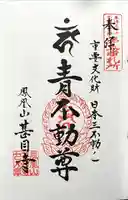 奉拝
重要文化財
日本三不動ノ一
青不動尊
鳳凰山
甚目寺